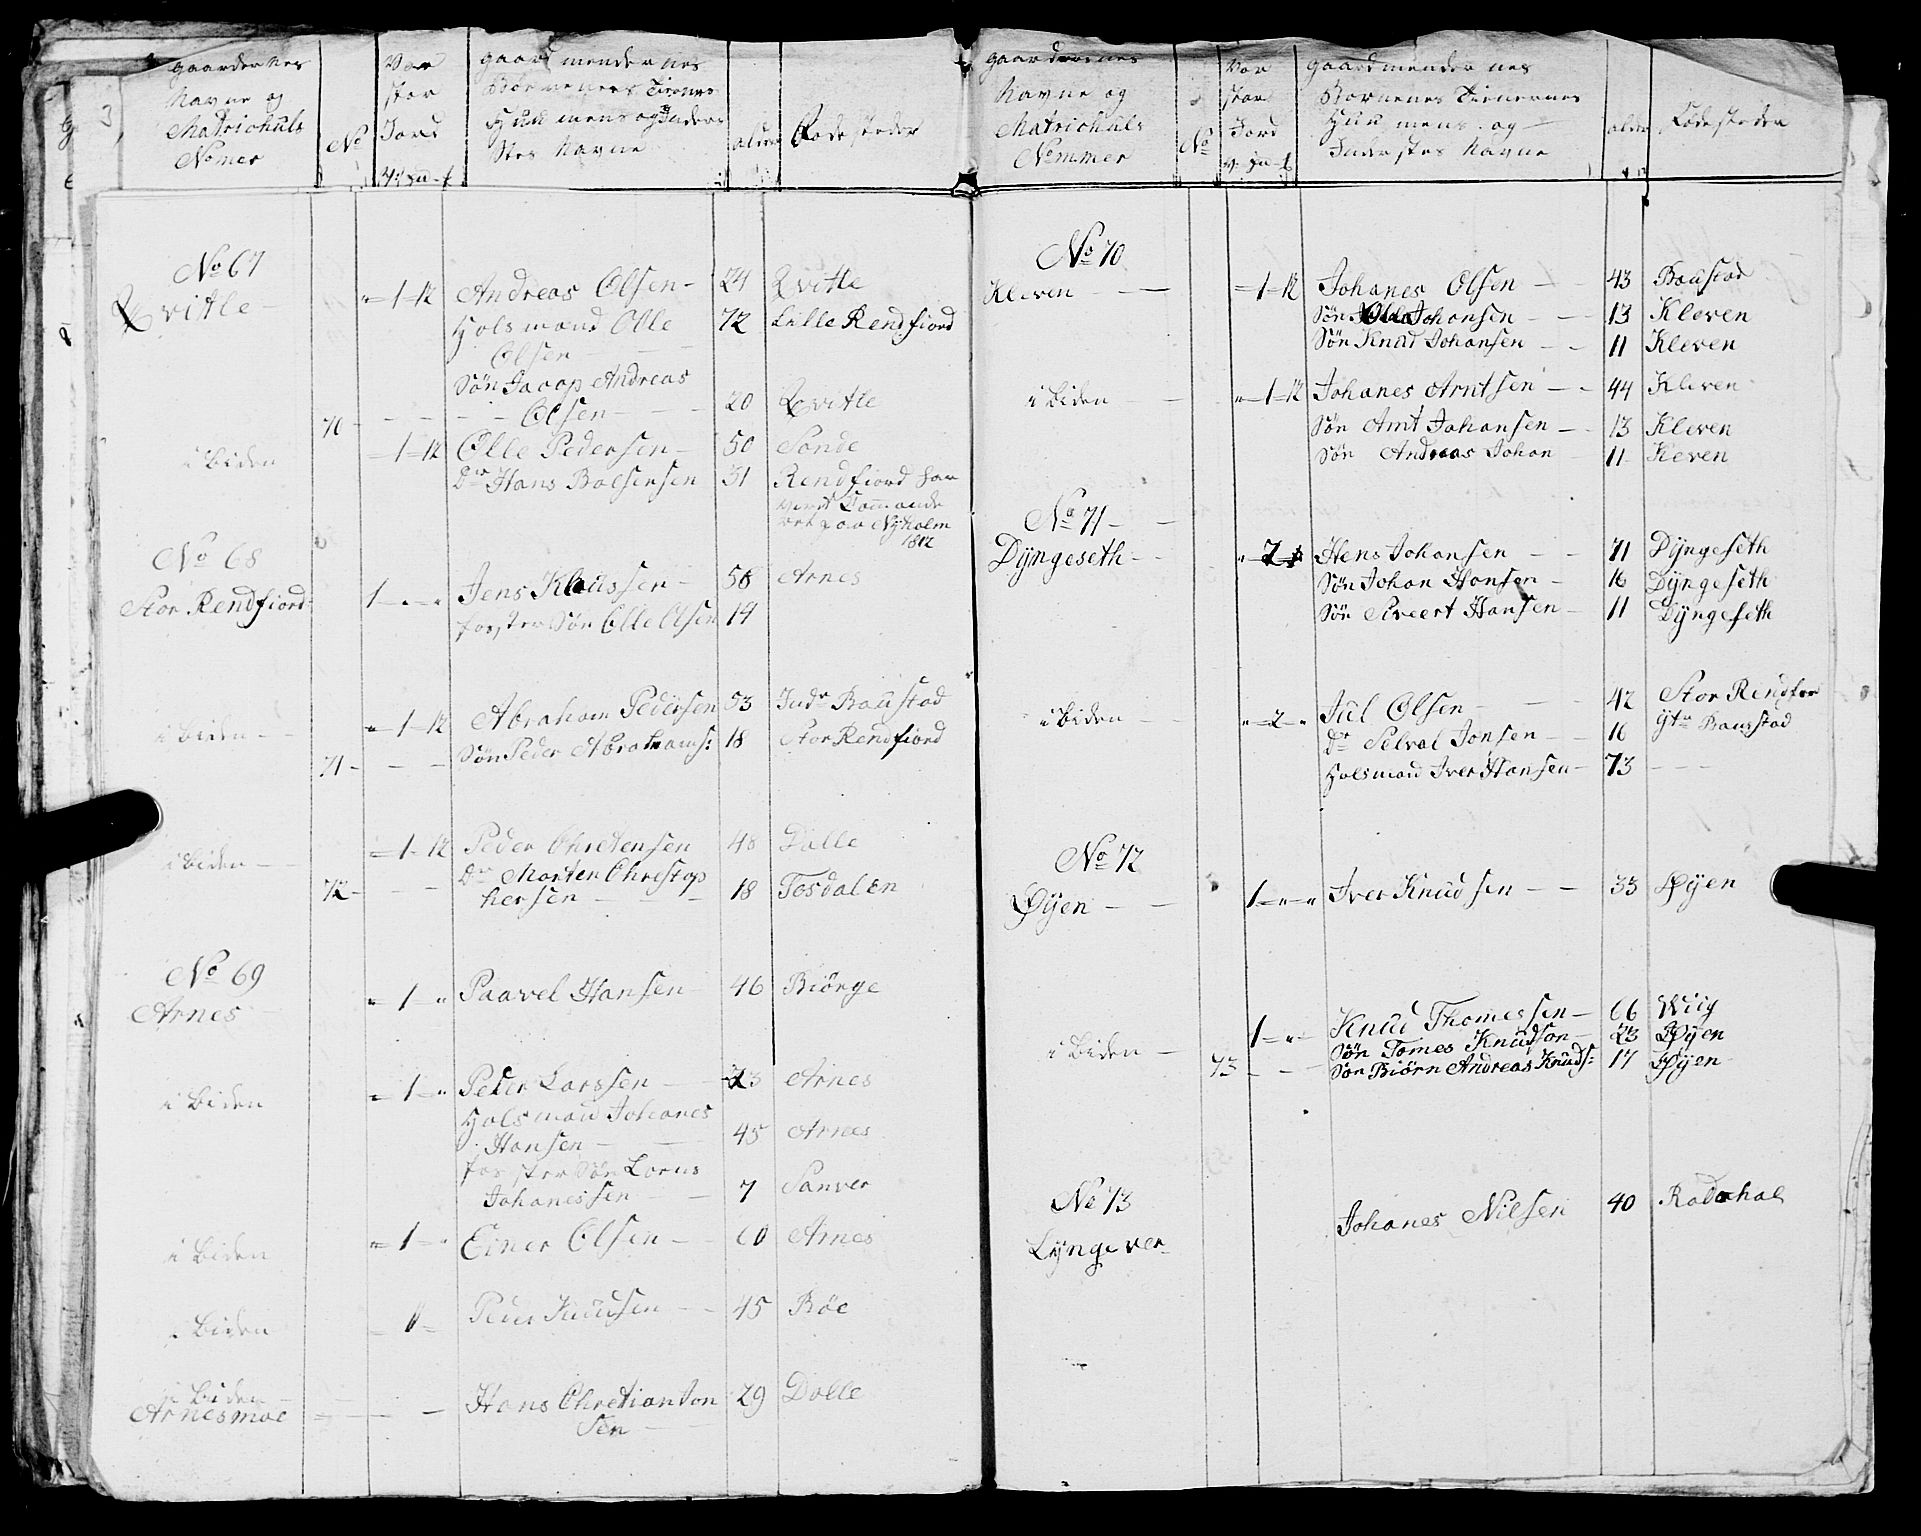 gaardernes
Navne og
Matrichuls
Nomer
No
Vor
stor
Jord
gaard mendernes
Børnenes Tienes
Huus mens og Inder
Stes Navne
alder
Fødesteder
No 67
Qvitle
" - 1 - 12 Andreas Olsen - 24 Qvitle
Holsmand Olle 72 Lille Rendfiord
Olsen
Søn Jacop Andreas
Olsen 20 Qvitle
70 -
i biden - 1 - 12 Olle Pedersen - 50 Sonde
Dr Hans Balsersen 31 Rendfiord har
Commande
ret paa Nyholm
1812
No 68
Stor Rendfiord 1 - " - " Jens Klaussen - 58 Arnes
foster Søn Olle Olsen 14
i biden - " - 1 - 12 Abraham Pedersen 53 Indr Baustad
71 - Søn Peder Abrahams: 18 Stor Rendfiord
i biden - = 1 - 12 Peder Chrestensen 48 Dalle
Dr Morten Chrestop
72 - hersen 18 Tosdalen
No 69
Arnes " - 1 - " Paavel Hansen - 46 Biörge
i biden = 1 - " Peder Larssen - 23 Arnes
Holsmand Johanes
Hansen - 45 Arnes
foster Søn Lorns
Johanessen - 7 Sanver
i biden " - 1 - " Einer Olsen - 60 Arnes
i biden Peder Knudsen - 45 Röe
i Biden
Arnesmoe Hans Chretian Jon 29 Dalle
sen
gaardernes
Navne og
Matrichuls
Nommer
No
Vor
stor
Jord
gaardmendernes
Børnenes Tienernes
Huus mens og
Inderstes Navne
alder
Fødesteder
No 70
Kleven - = 1 - 12 Johanes Olsen - 43 Baustad
Søn Olle Johansen - 13 Kleven
Søn Knud Johansen - 11 Kleven
i biden - " - 1 - 12 Johanes Arntsen - 44 Kleven
Søn Arnt Johansen - 13 Kleven
Søn Andreas Johan 11 Kleven
No 71 -
Dÿngeseth - " - 2 Hens Johansen - 71 Dÿngeseth
Søn Johan Hansen - 16 Dÿngeseth
Søn Siveert Hansen - 11 Dÿngeseth
i biden - " - 2 - " Jul Olsen - 42 Stor Rendfior
Dr Selval Jonsen - 16 Ytr Baustad
Holsmand Iver Hansen - 73 - - -
No 72
Øÿen - 1 - " - " Iver Knudsen - 33 Øÿen
i biden - 1 - " - Knud Thomessen - 66 Wiig
Søn Tomes Knudson - 23 Øÿen
73 - Søn Biørn Andreas Knuds: 17 Øÿen
No 73
Lÿngever Johanes Nilsen 40 Rødahal